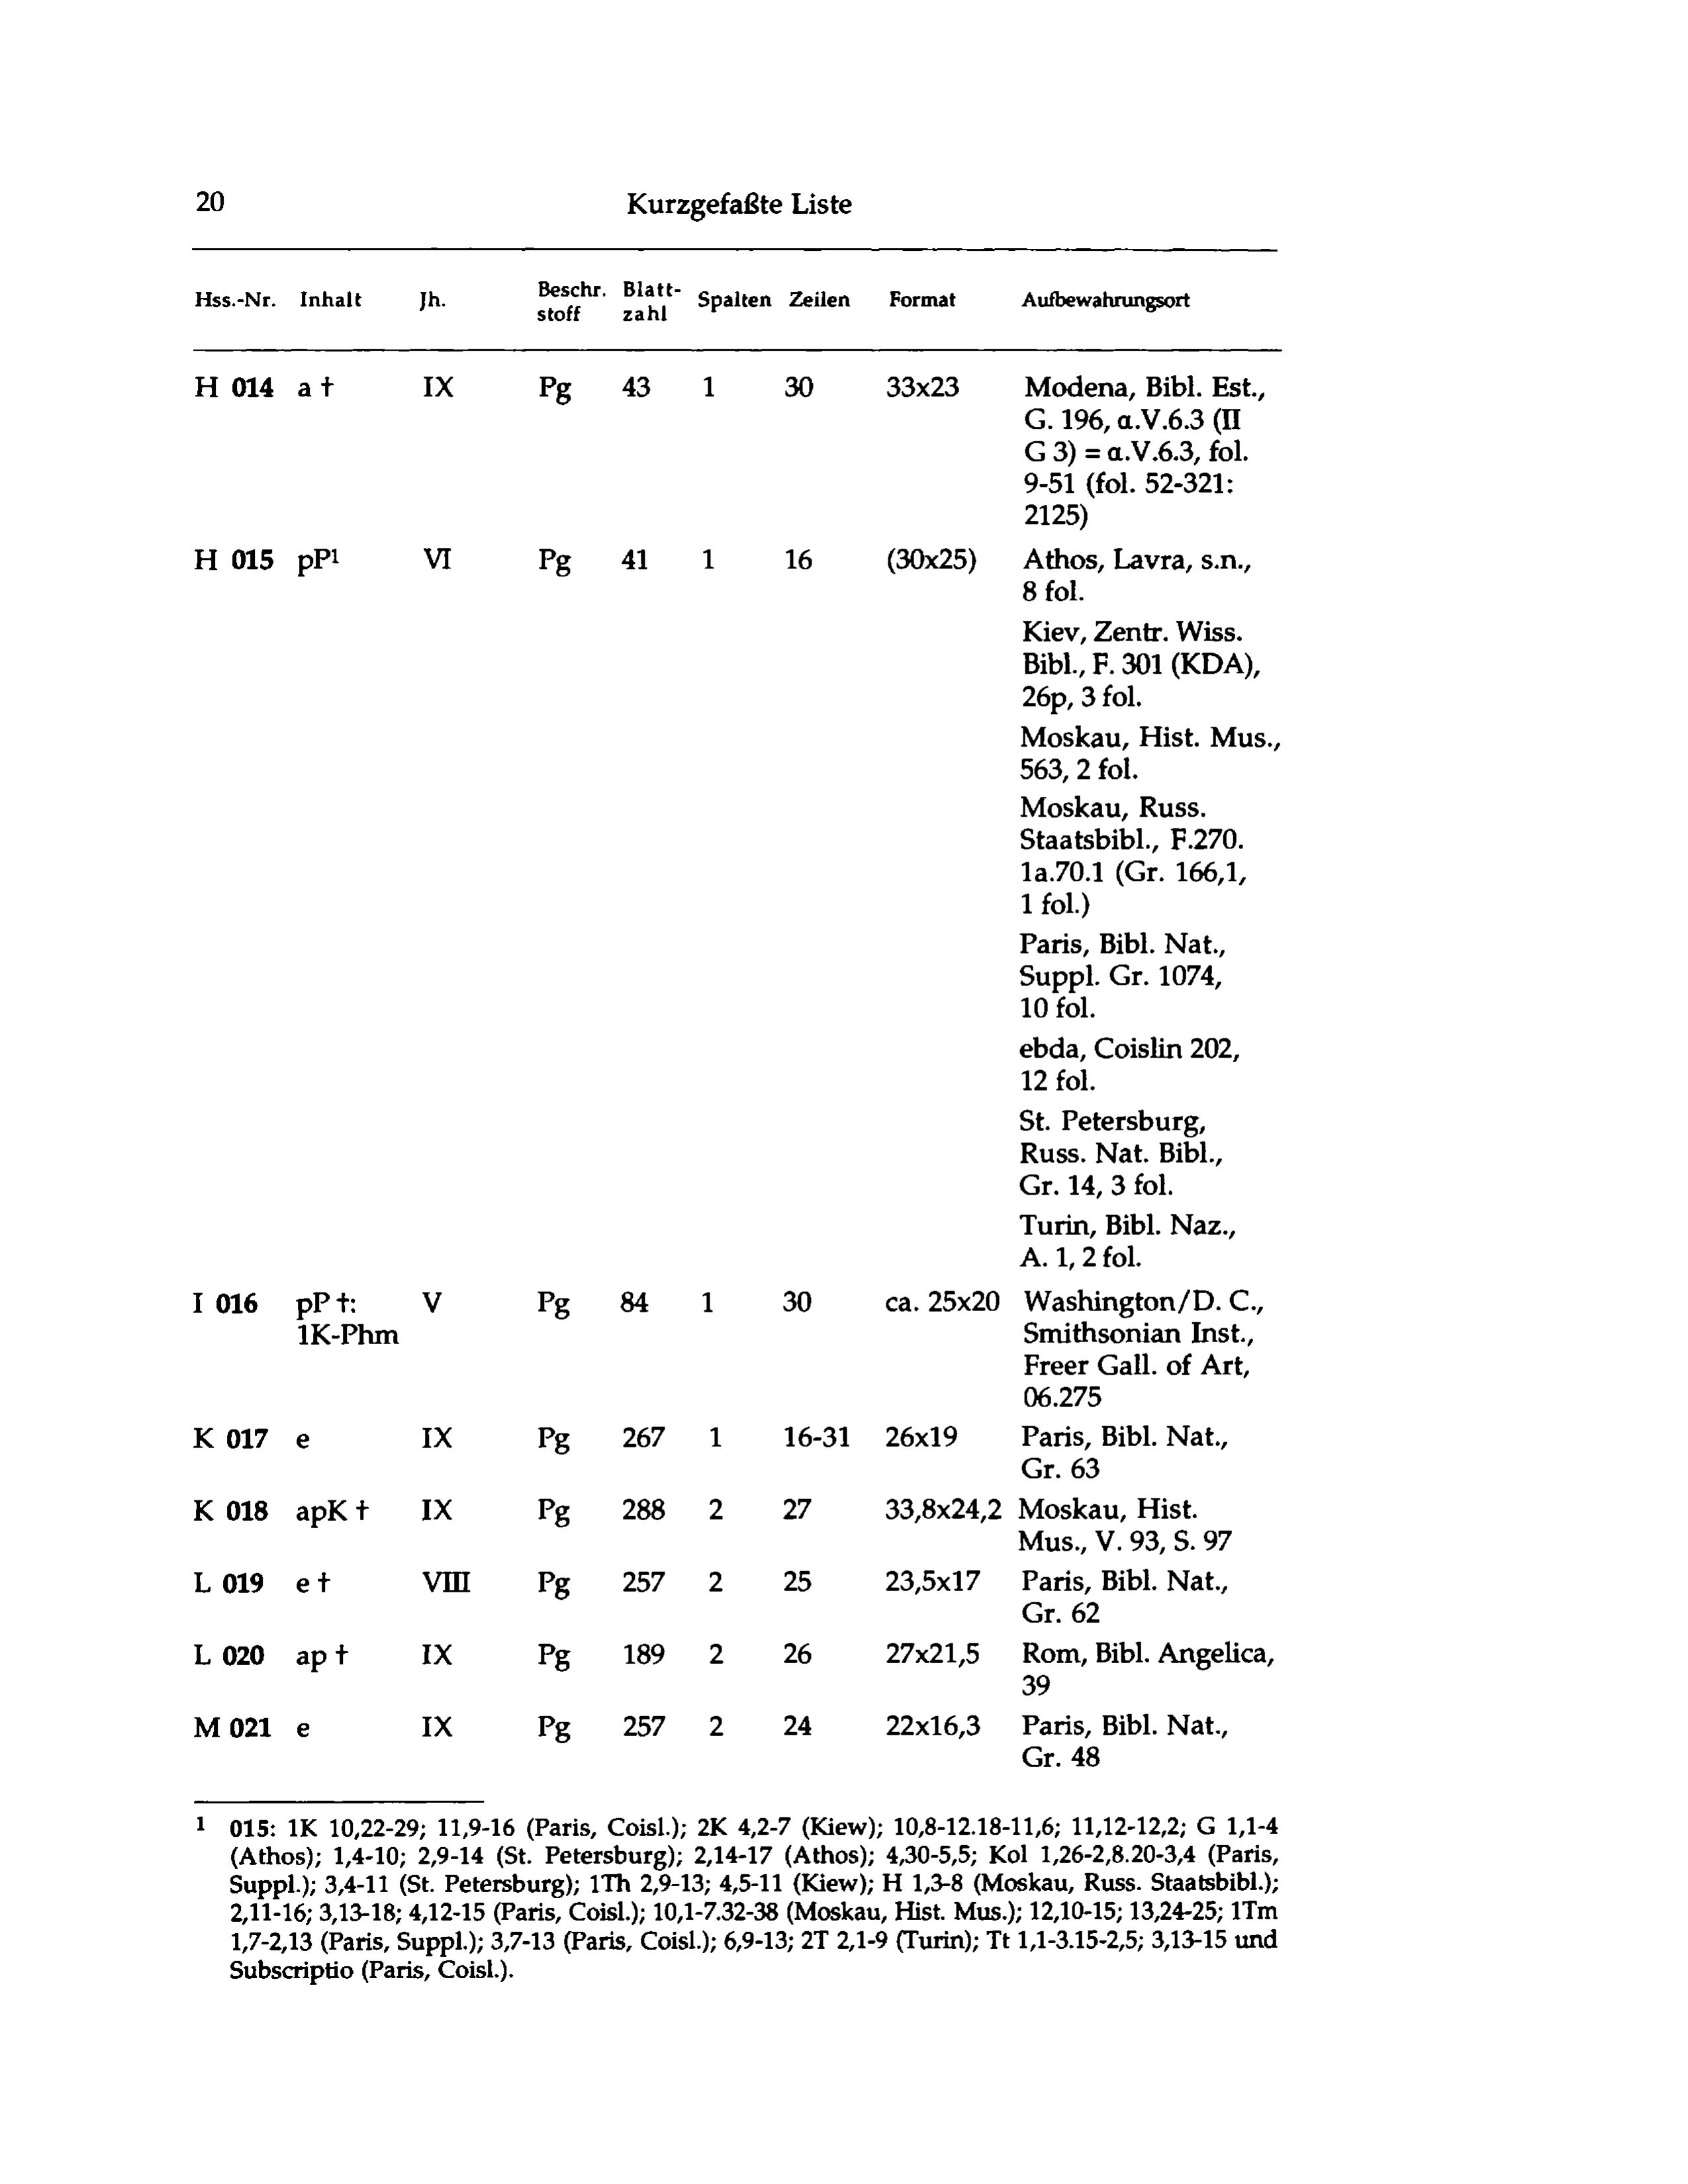 20 Kurzgefaßte Liste
Hss.-Nr. Inhalt Jh. Beschr. stoff Blatt- zahl Spalten Zeilen Format Aufbewahrungsort
H 014 a † IX Pg 43 1 30 33x23 Modena, Bibl. Est.,
G. 196, α.V.6.3 (II
G 3) = α.V.6.3, fol.
9-51 (fol. 52-321:
2125)
H 015 pP¹ VI Pg 41 1 16 (30x25) Athos, Lavra, s.n.,
8 fol.
Kiev, Zentr. Wiss.
Bibl., F. 301 (KDA),
26p, 3 fol.
Moskau, Hist. Mus.,
563, 2 fol.
Moskau, Russ.
Staatsbibl., F.270.
1a.70.1 (Gr. 166,1,
1 fol.)
Paris, Bibl. Nat.,
Suppl. Gr. 1074,
10 fol.
ebda, Coislin 202,
12 fol.
St. Petersburg,
Russ. Nat. Bibl.,
Gr. 14, 3 fol.
Turin, Bibl. Naz.,
A. 1, 2 fol.
I 016 pP †: V Pg 84 1 30 ca. 25x20 Washington/D. C.,
1K-Phm Smithsonian Inst.,
Freer Gall. of Art,
06.275
K 017 e IX Pg 267 1 16-31 26x19 Paris, Bibl. Nat.,
Gr. 63
K 018 apK † IX Pg 288 2 27 33,8x24,2 Moskau, Hist.
Mus., V. 93, S. 97
L 019 e † VIII Pg 257 2 25 23,5x17 Paris, Bibl. Nat.,
Gr. 62
L 020 ap † IX Pg 189 2 26 27x21,5 Rom, Bibl. Angelica,
39
M 021 e IX Pg 257 2 24 22x16,3 Paris, Bibl. Nat.,
Gr. 48
1 015: 1K 10,22-29; 11,9-16 (Paris, Coisl.); 2K 4,2-7 (Kiew); 10,8-12.18-11,6; 11,12-12,2; G 1,1-4
(Athos); 1,4-10; 2,9-14 (St. Petersburg); 2,14-17 (Athos); 4,30-5,5; Kol 1,26-2,8.20-3,4 (Paris,
Suppl.); 3,4-11 (St. Petersburg); 1Th 2,9-13; 4,5-11 (Kiew); H 1,3-8 (Moskau, Russ. Staatsbibl.);
2,11-16; 3,13-18; 4,12-15 (Paris, Coisl.); 10,1-7.32-38 (Moskau, Hist. Mus.); 12,10-15; 13,24-25; 1Tm
1,7-2,13 (Paris, Suppl.); 3,7-13 (Paris, Coisl.); 6,9-13; 2T 2,1-9 (Turin); Tt 1,1-3.15-2,5; 3,13-15 und
Subscriptio (Paris, Coisl.).